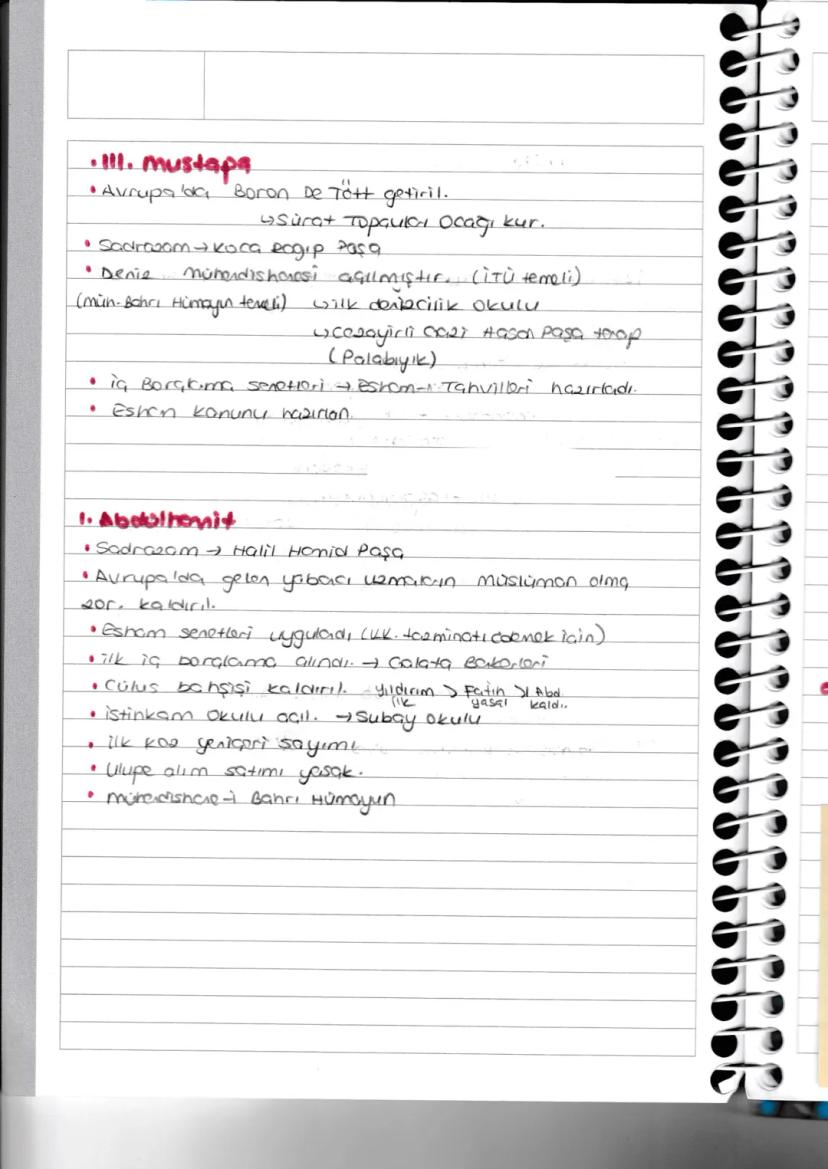 • III. Mustapa
• Avrupa'da Boron De Tött getiril.
↳ Sürat Topçuları Ocağı kur.
• Sadrazam → Koca Ragıp Paşa
• Deniz Mühendishanesi açılmıştır. (İTÜ temeli)
(Müh-Bahri Hümayun temeli) ↳ ilk denizcilik okulu
↳ Cezayirli Gazi Hasan Paşa
(Palabıyık)
• iç Borçlanma senetleri → Esham-ı Tahvilleri hazırladı.
• Esham kanunu hazırlan.
I. Abdülhamit
• Sadrazam → Halil Hamid Paşa
• Avrupa'da gelen yabacı uzmanların müslüman olma
zor. kaldırıl.
• Esham senetleri uyguladı (K.K. tazminatı ödemek için)
• ilk iç borçlama alındı. → Galata Bankerleri
• Cülus bahşişi kaldırıl. Yıldırım > Fatih > I Abd
ilk yasal kaldı..
• istihkam okulu açıl. → Subay okulu
• ilk kez yeniçeri sayımı
• Ulufe alım satımı yasak.
• mühendishane-i Bahri Hümayun